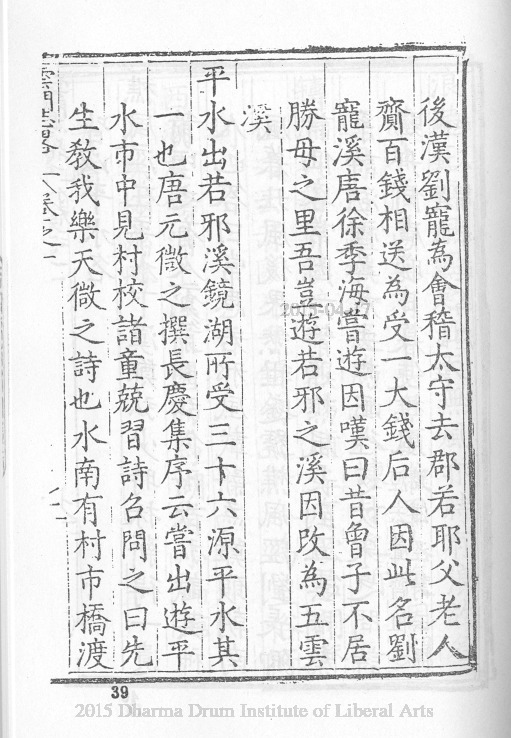 後漢劉寵為會稽太守去郡若耶父老人
齎百錢相送為受一大錢后人因此名劉
寵溪唐徐季海嘗遊因嘆曰昔曾子不居
勝母之里吾豈遊若邪之溪因改為五雲
溪
平水出若邪溪鏡湖所受三十六源平水其
一也唐元微之撰長慶集序云嘗出遊平
水市中見村校諸童兢習詩名問之曰先
生教我樂天微之詩也水南有村市橋渡
雲門志畧 卷之一
39
2015 Dharma Drum Institute of Liberal Arts